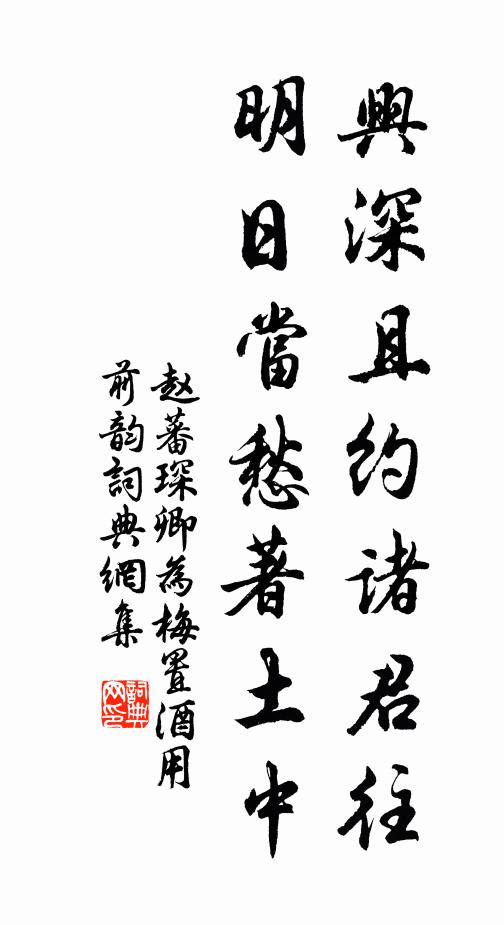 興深且約诸君往
明日當愁著土中
赵蕃琛卿為梅置酒用
前韵詞典網集
詞典
网印